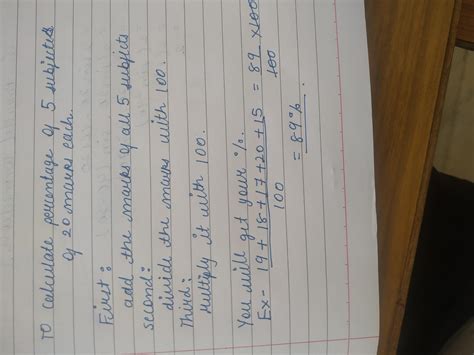 To calculate percentage of 5 subjects
of 20 marks each.
First:
add the marks of all 5 subjects
second:
divide the marks with 100.
Third:
Multiply it with 100.
You will get your %.
Ex- 19+18+17+20+15 = 89 ×100
100 100
= 89%.